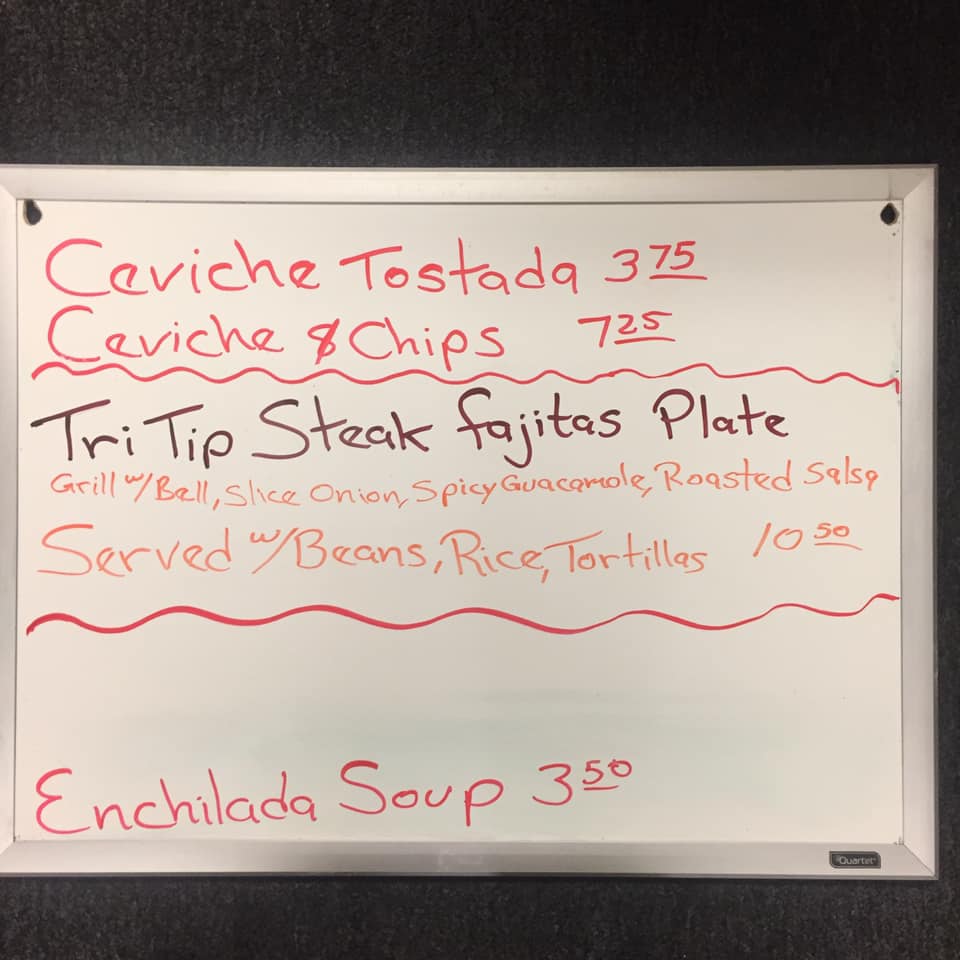 Ceviche Tostada 3 75
Ceviche & Chips 7 25
Tri Tip Steak fajitas Plate
Grill w/ Bell, Slice Onion, Spicy Guacamole, Roasted Salsa
Served w/ Beans, Rice, Tortillas 10 50
Enchilada Soup 3 50
Quartet